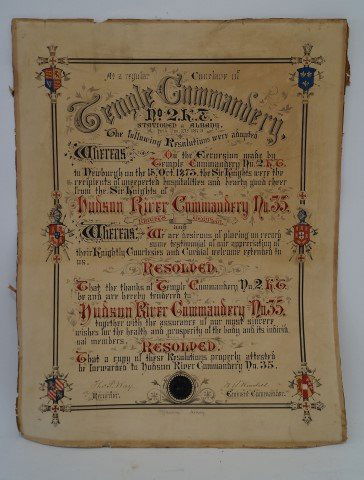 At a regular Conclave of
Temple Commandery,
No. 2. K. T.
STATIONED at ALBANY,
The following Resolutions were adopted
Whereas, On the Excursion made by
Temple Commandery No. 2. K.T.
to Newburgh on the 15. Oct. 1873. the Sir Knights were the
recipients of unexpected hospitalities and hearty good cheer
from the Sir Knights of
Hudson River Commandery No. 35.
and
Whereas, We are desirous of placing on record
some testimonial of our appreciation of
their Knightly Courtesies and Cordial welcome extended
to us.
RESOLVED.
That the thanks of Temple Commandery No. 2. K.T.
be and are hereby tendered to
Hudson River Commandery No. 35.
together with the assurance of our most sincere
wishes for the health and prosperity of the body and its individ-
ual members
RESOLVED.
That a copy of these Resolutions properly attested
be forwarded to Hudson River Commandery No. 35.
Recorder.
Eminent Commander.